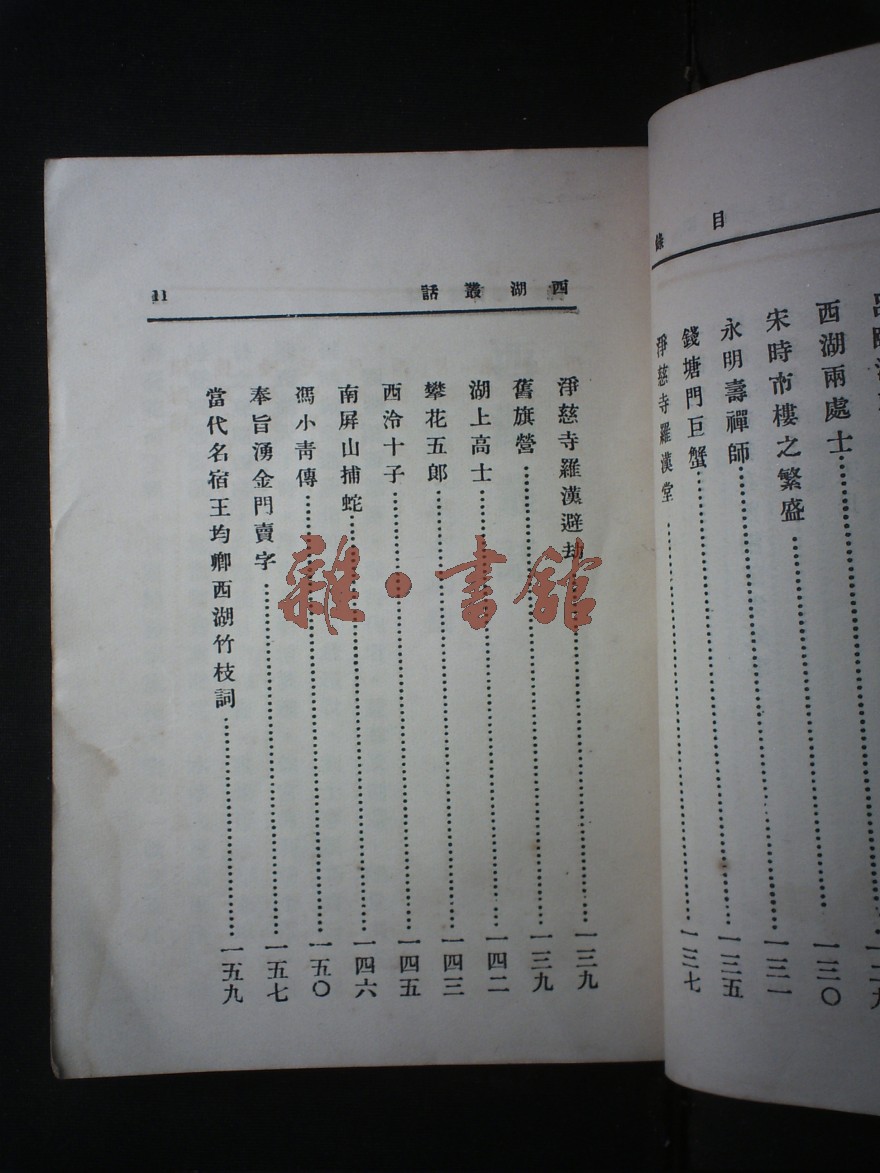 目錄
西湖兩處士……一三〇
宋時市樓之繁盛……一三一
永明壽禪師……一三五
錢塘門巨蟹……一三七
淨慈寺羅漢堂
西湖叢話
11
淨慈寺羅漢避劫……一三九
舊旗營……一三九
湖上高士……一四二
攀花五郎……一四三
西泠十子……一四五
南屏山捕蛇……一四六
馮小靑傳……一五〇
奉旨湧金門賣字……一五七
當代名宿王均卿西湖竹枝詞……一五九
雜·書館